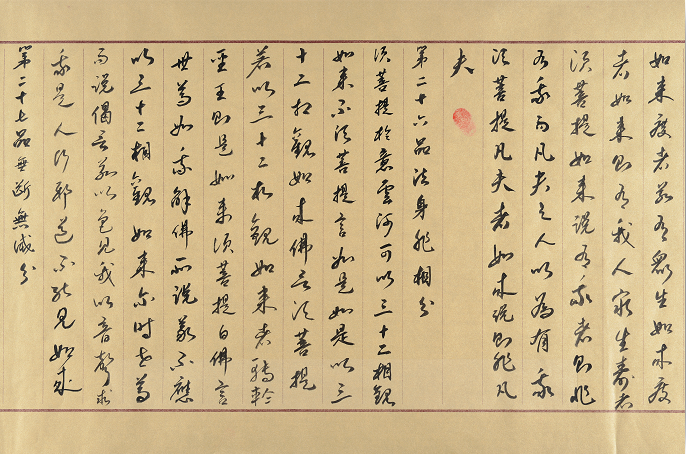 如來度者若有眾生如來度
者如來則有我人眾生壽者
須菩提如來說有我者則非
有我而凡夫之人以為有我
須菩提凡夫者如來說則非凡
夫
第二十六品法身非相分
須菩提於意雲何可以三十二相觀
如來不須菩提言如是如是以三
十二相觀如來佛言須菩提
若以三十二相觀如來者轉輪
聖王則是如來須菩提白佛言
世尊如我解佛所說義不應
以三十二相觀如來爾時世尊
而說偈言若以色見我以音聲求
我是人行邪道不能見如來
第二十七品無斷無滅分